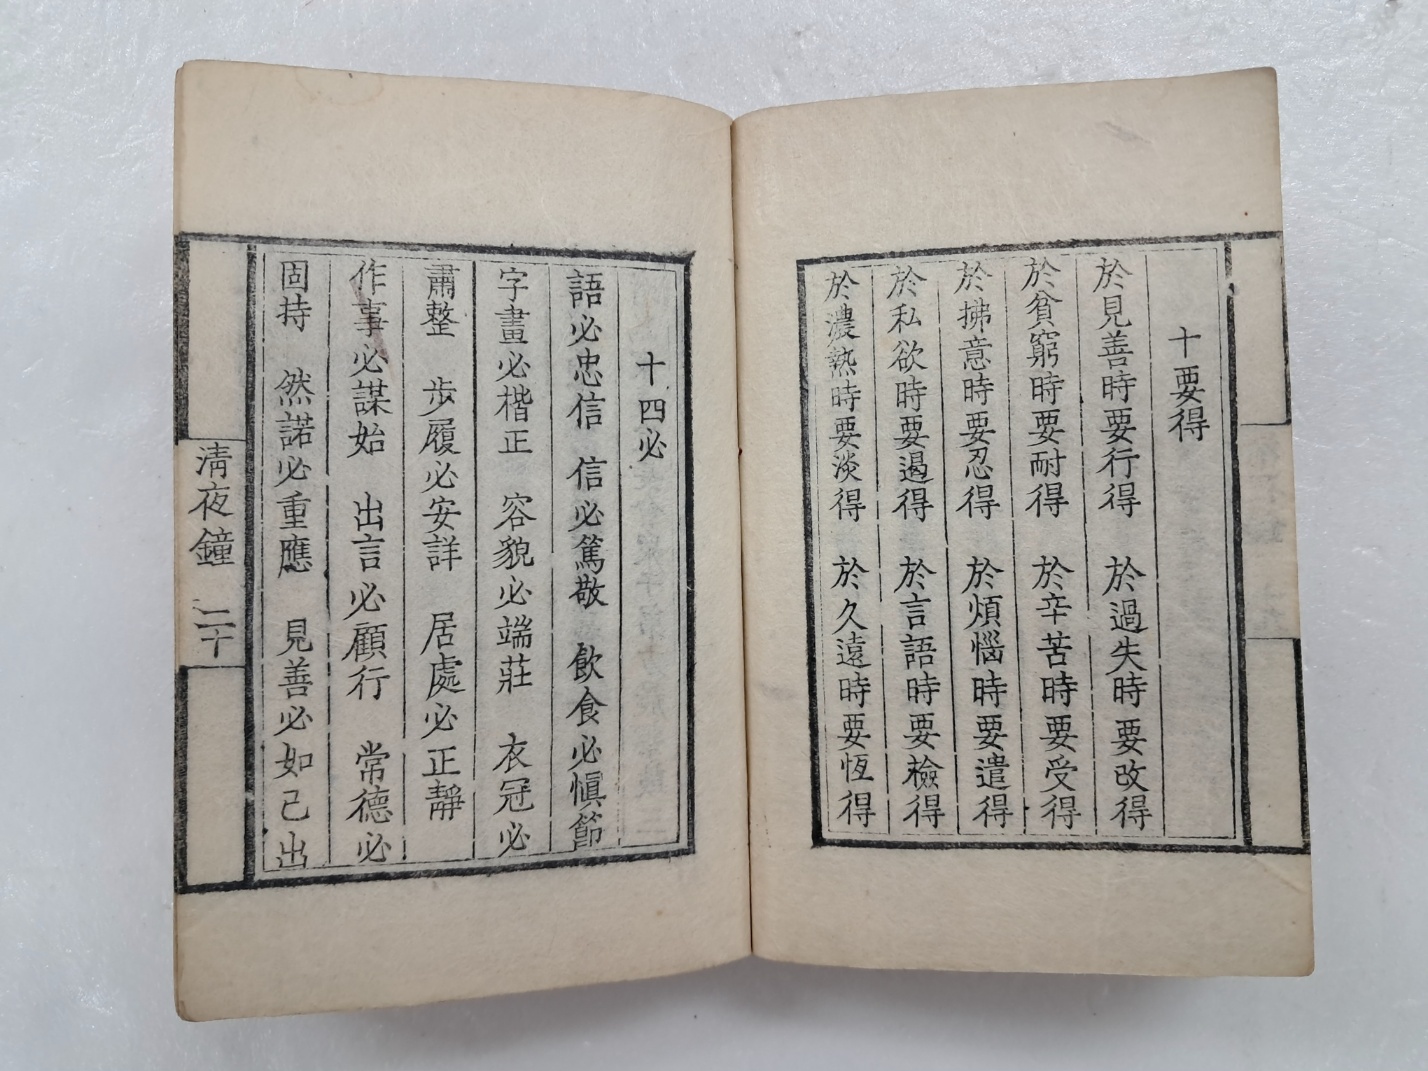 十要得
於見善時要行得　於過失時要改得
於貧窮時要耐得　於辛苦時要受得
於拂意時要忍得　於煩惱時要遣得
於私欲時要遏得　於言語時要檢得
於濃熱時要淡得　於久遠時要恆得
十四必
語必忠信　信必篤敬　飲食必愼節
字畫必楷正　容貌必端莊　衣冠必
肅整　步履必安詳　居處必正靜
作事必謀始　出言必顧行　常德必
固持　然諾必重應　見善必如己出
淸夜鐘　二十